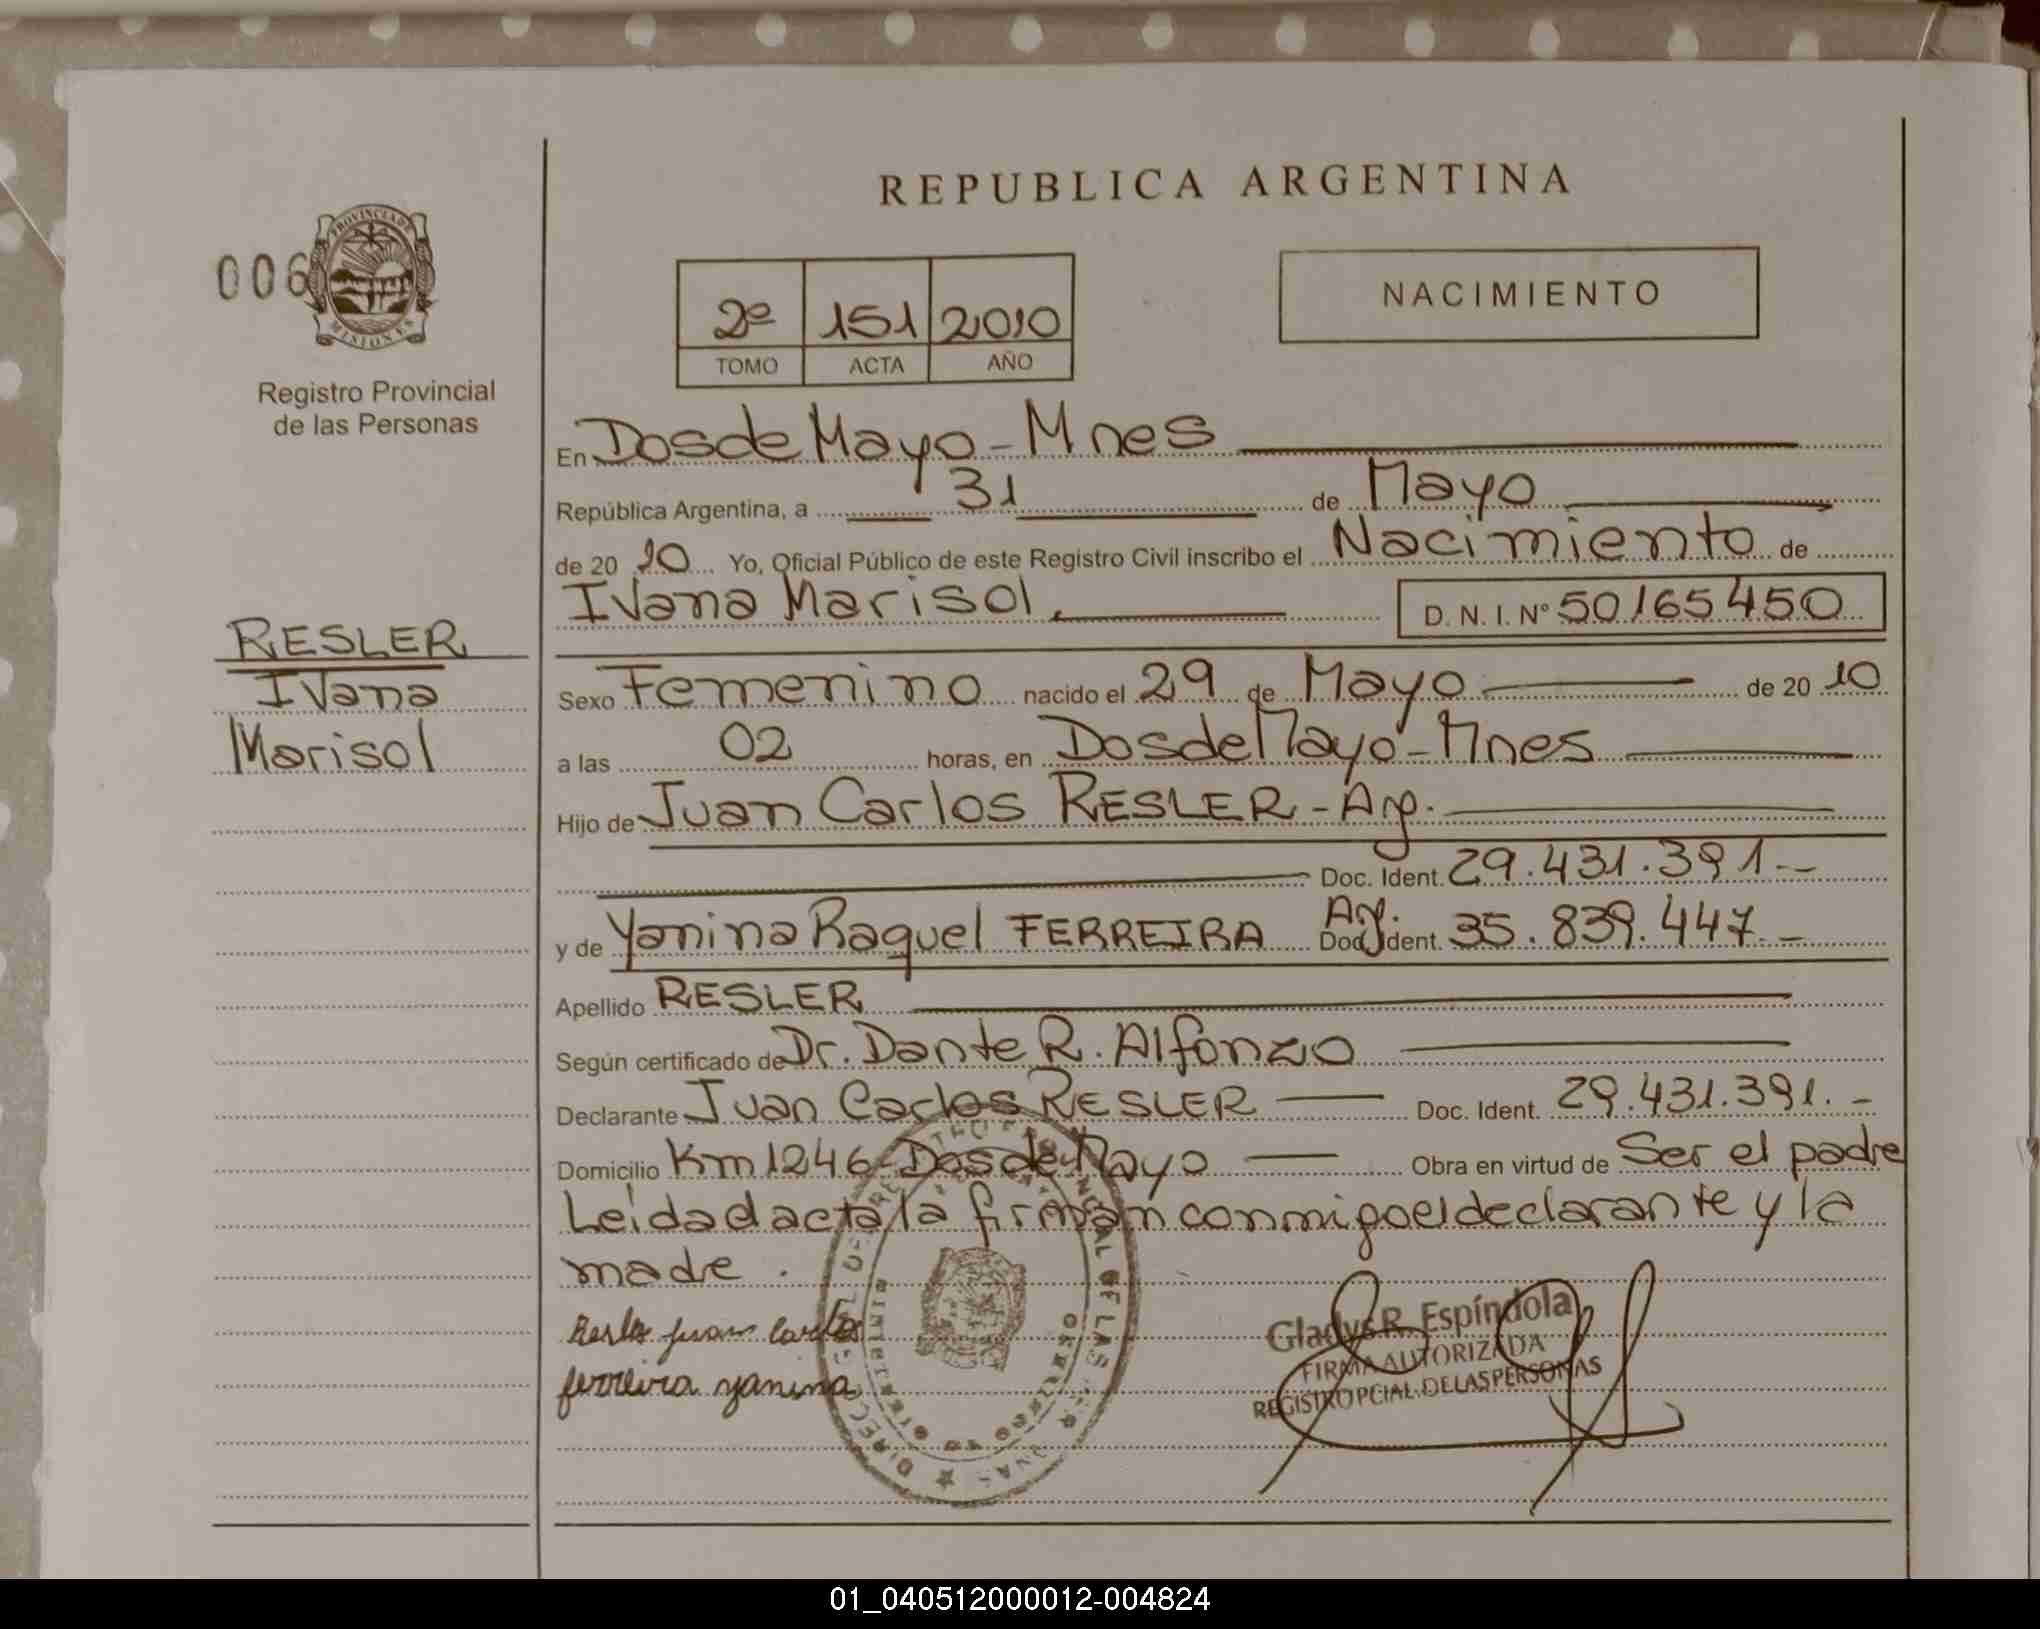 REPUBLICA ARGENTINA
006
PROVINCIA DE
MISIONES
Registro Provincial
de las Personas
2º 151 2010
TOMO ACTA AÑO
NACIMIENTO
En Dos de Mayo - Mnes
República Argentina, a 31 de Mayo
de 20 10 Yo, Oficial Público de este Registro Civil inscribo el Nacimiento de
Ivana Marisol. D. N. I. Nº 50165450
RESLER
Ivana
Marisol
Sexo Femenino nacido el 29 de Mayo de 20 10
a las 02 horas, en Dos de Mayo - Mnes
Hijo de Juan Carlos RESLER - Arg.
Doc. Ident. 29.431.391.-
y de Yanina Raquel FERREIRA Arg. Doc. Ident. 35.839.447.-
Apellido RESLER
Según certificado de Dr. Dante R. Alfonzo
Declarante Juan Carlos RESLER Doc. Ident. 29.431.391.-
Domicilio Km 1246 - Dos de Mayo Obra en virtud de Ser el padre
Leida el acta, la firman conmigo el declarante y la
made.
Resler juan carlos
ferreira yanina
Gladys R. Espíndola
FIRMA AUTORIZADA
REGISTRO PCIAL. DE LAS PERSONAS
01_040512000012-004824